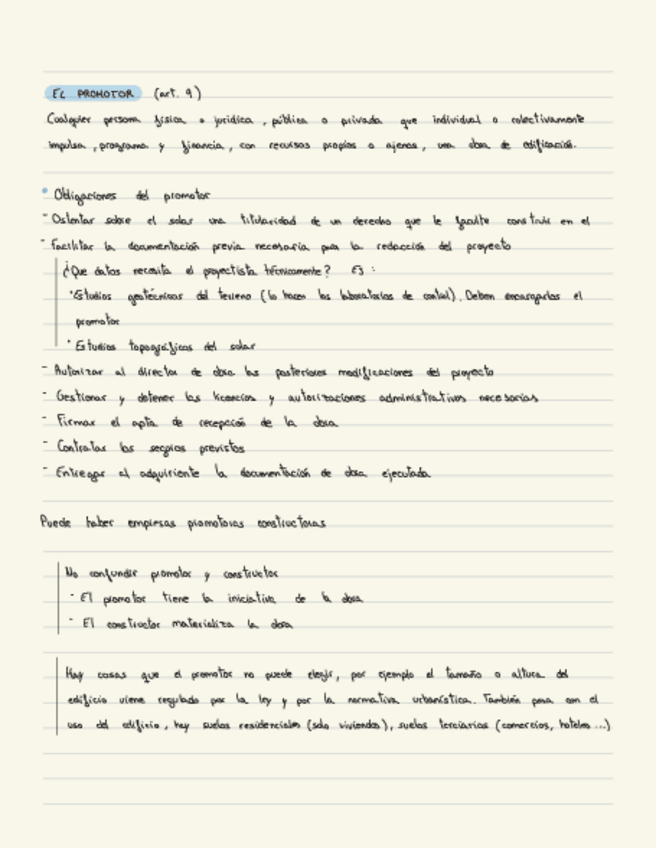 EL PROMOTOR (art. 9)
Cualquier persona física o jurídica, pública o privada que individual o colectivamente
impulsa, programa y financia, con recursos propios o ajenos, una obra de edificación.
• Obligaciones del promotor
- Ostentar sobre el solar una titularidad de un derecho que le faculte construir en el
- Facilitar la documentación previa necesaria para la redacción del proyecto
¿Que datos necesita el proyectista técnicamente? Ej:
• Estudios geotécnicos del terreno (lo hacen los laboratorios de control). Deben encargarlos el
promotor
• Estudios topográficos del solar
- Autorizar al director de obra las posteriores modificaciones del proyecto
- Gestionar y obtener las licencias y autorizaciones administrativas necesarias
- Firmar el acta de recepción de la obra
- Contratar los seguros previstos
- Entregar al adquiriente la documentación de obra ejecutada
Puede haber empresas promotoras constructoras
No confundir promotor y constructor
- El promotor tiene la iniciativa de la obra
- El constructor materializa la obra
Hay cosas que el promotor no puede elegir, por ejemplo el tamaño o altura del
edificio viene regulado por la ley y por la normativa urbanística. También pasa con el
uso del edificio, hay suelos residenciales (solo viviendas), suelos terciarios (comercios, hoteles ...)